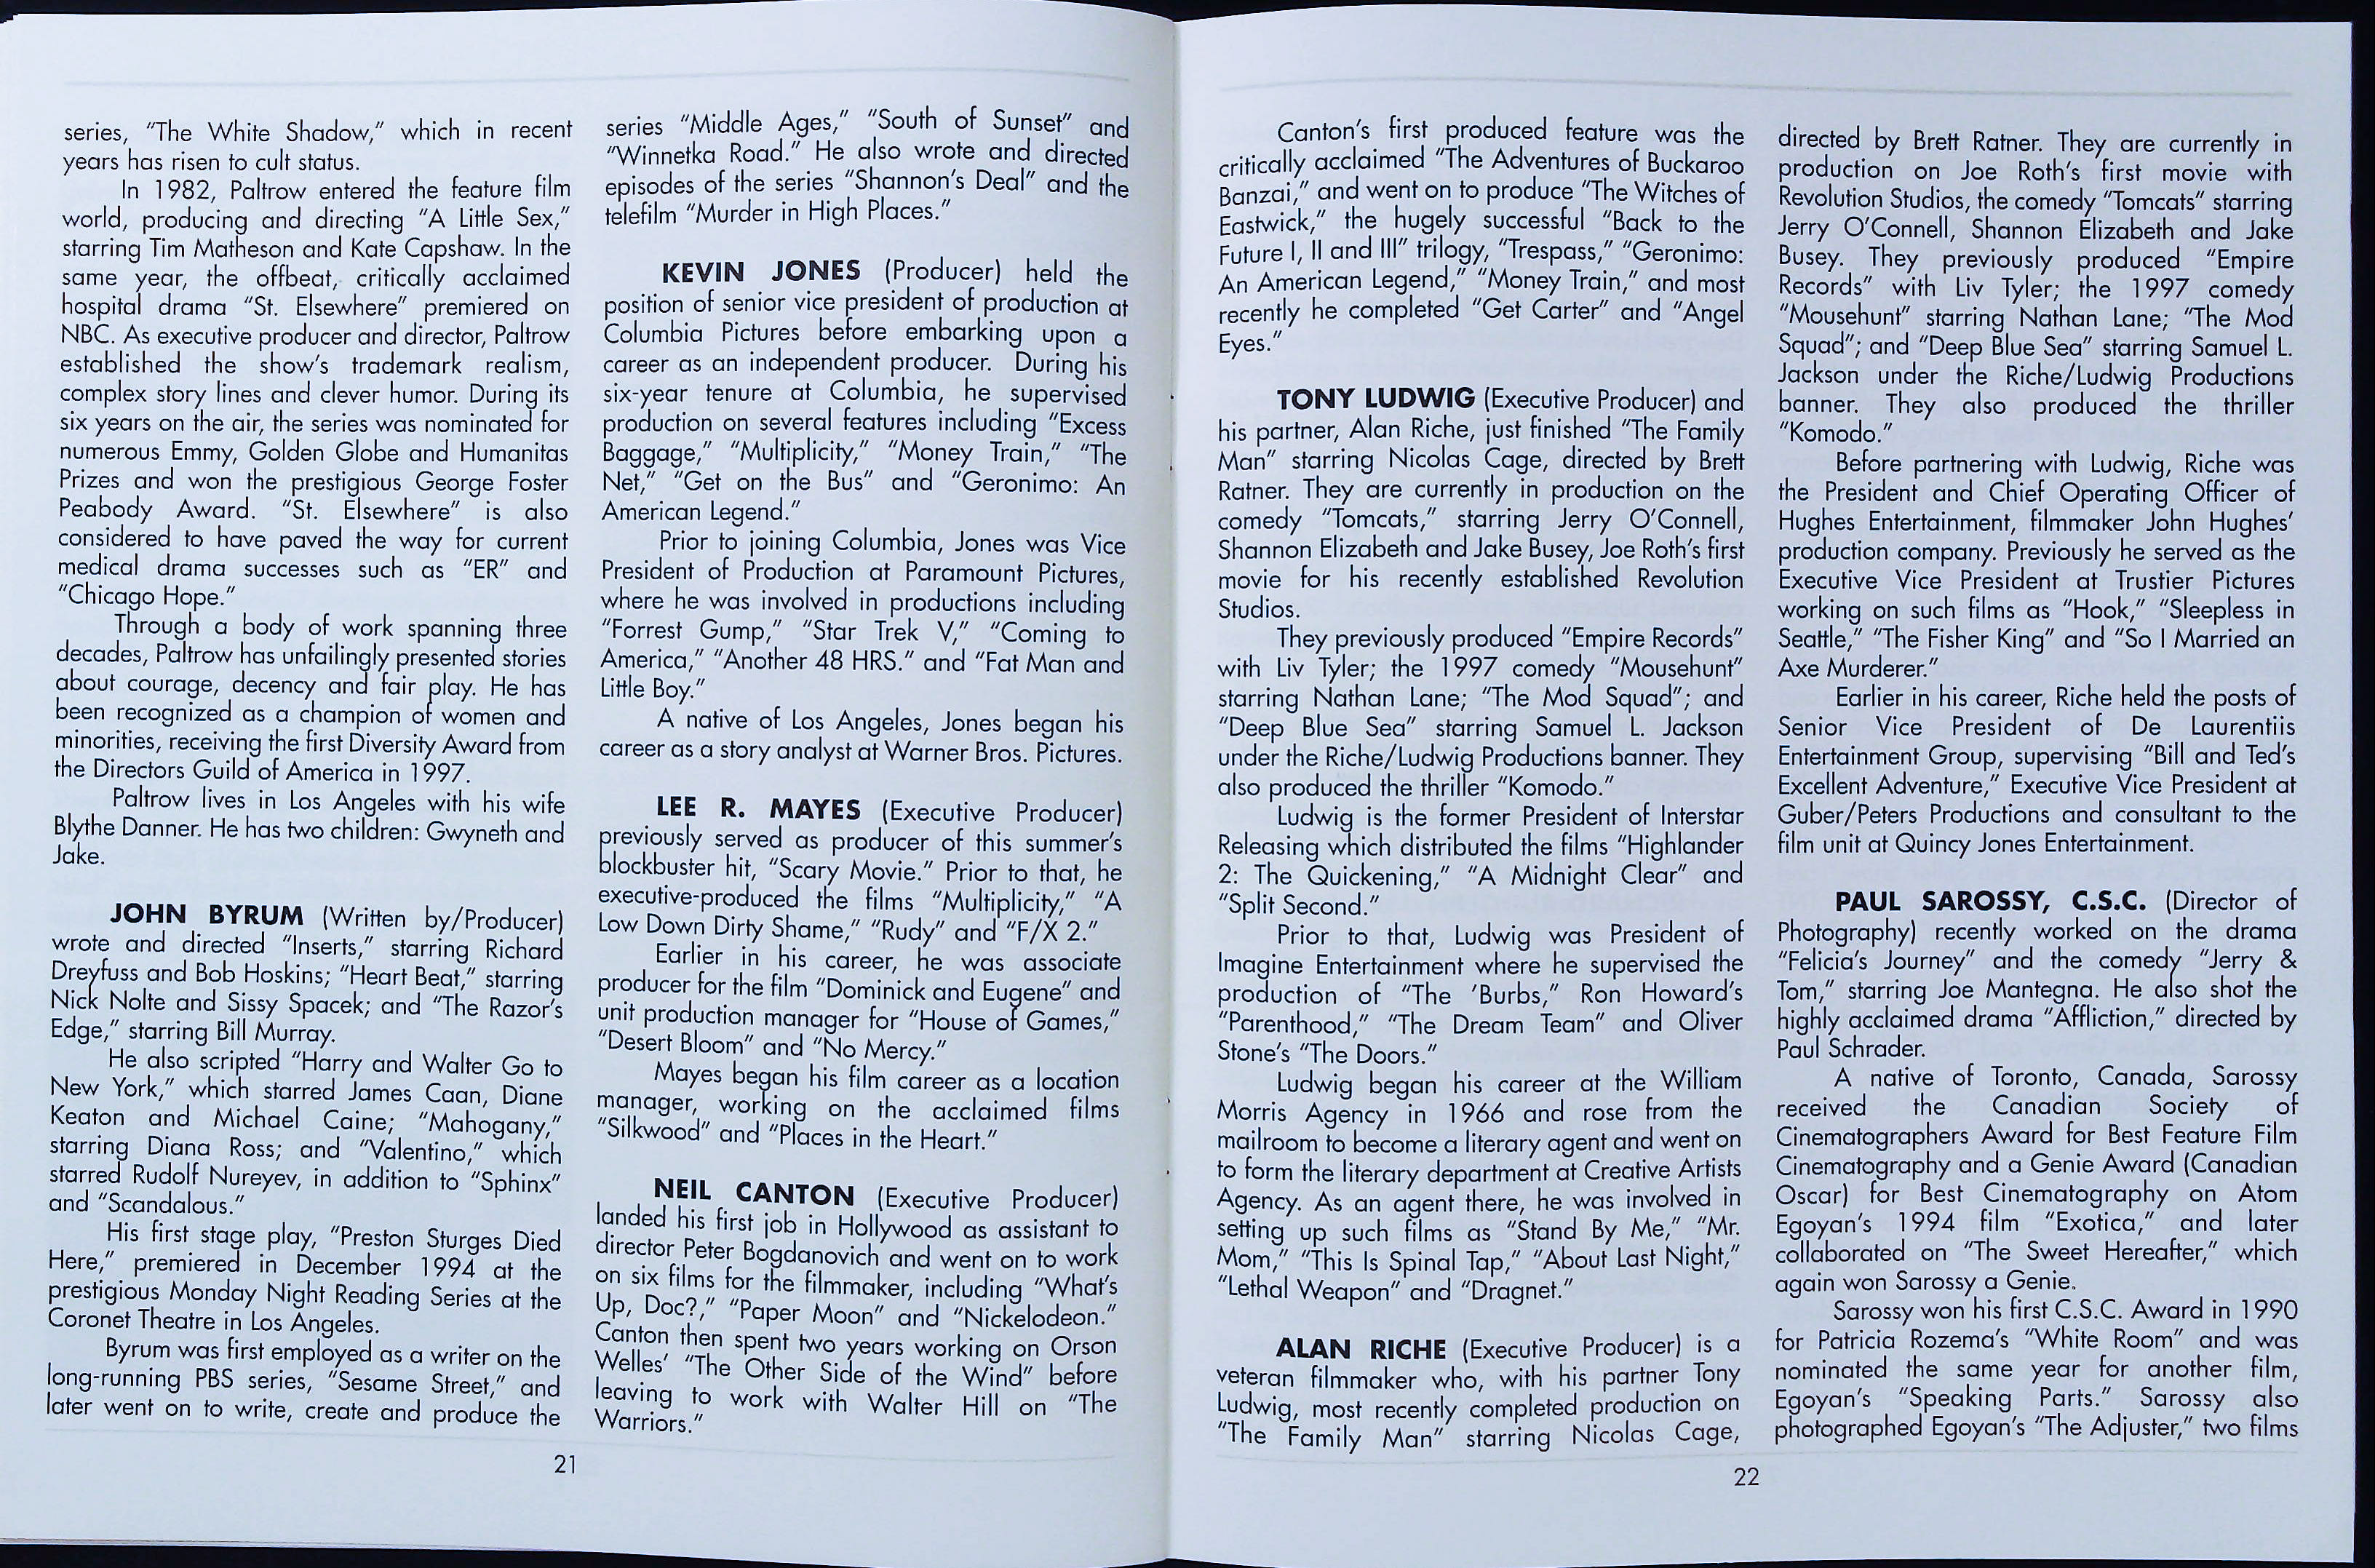 series, "The White Shadow," which in recent
years has risen to cult status.
In 1982, Paltrow entered the feature film
world, producing and directing "A Little Sex,"
starring Tim Matheson and Kate Capshaw. In the
same year, the offbeat, critically acclaimed
hospital drama "St. Elsewhere" premiered on
NBC. As executive producer and director, Paltrow
established the show's trademark realism,
complex story lines and clever humor. During its
six years on the air, the series was nominated for
numerous Emmy, Golden Globe and Humanitas
Prizes and won the prestigious George Foster
Peabody Award. "St. Elsewhere" is also
considered to have paved the way for current
medical drama successes such as "ER" and
"Chicago Hope."
Through a body of work spanning three
decades, Paltrow has unfailingly presented stories
about courage, decency and fair play. He has
been recognized as a champion of women and
minorities, receiving the first Diversity Award from
the Directors Guild of America in 1997.
Paltrow lives in Los Angeles with his wife
Blythe Danner. He has two children: Gwyneth and
Jake.
JOHN BYRUM (Written by/Producer)
wrote and directed "Inserts," starring Richard
Dreyfuss and Bob Hoskins; "Heart Beat," starring
Nick Nolte and Sissy Spacek; and "The Razor's
Edge," starring Bill Murray.
He also scripted "Harry and Walter Go to
New York," which starred James Caan, Diane
Keaton and Michael Caine; "Mahogany,"
starring Diana Ross; and "Valentino," which
starred Rudolf Nureyev, in addition to "Sphinx"
and "Scandalous."
His first stage play, "Preston Sturges Died
Here," premiered in December 1994 at the
prestigious Monday Night Reading Series at the
Coronet Theatre in Los Angeles.
Byrum was first employed as a writer on the
long-running PBS series, "Sesame Street," and
later went on to write, create and produce the
series "Middle Ages," "South of Sunset" and
"Winnetka Road." He also wrote and directed
episodes of the series "Shannon's Deal" and the
telefilm "Murder in High Places."
KEVIN JONES (Producer) held the
position of senior vice president of production at
Columbia Pictures before embarking upon a
career as an independent producer. During his
six-year tenure at Columbia, he supervised
production on several features including "Excess
Baggage," "Multiplicity," "Money Train," "The
Net," "Get on the Bus" and "Geronimo: An
American Legend."
Prior to joining Columbia, Jones was Vice
President of Production at Paramount Pictures,
where he was involved in productions including
"Forrest Gump," "Star Trek V," "Coming to
America," "Another 48 HRS." and "Fat Man and
Little Boy."
A native of Los Angeles, Jones began his
career as a story analyst at Warner Bros. Pictures.
LEE R. MAYES (Executive Producer)
previously served as producer of this summer's
blockbuster hit, "Scary Movie." Prior to that, he
executive-produced the films "Multiplicity," "A
Low Down Dirty Shame," "Rudy" and "F/X 2."
Earlier in his career, he was associate
producer for the film "Dominick and Eugene" and
unit production manager for "House of Games,"
"Desert Bloom" and "No Mercy."
Mayes began his film career as a location
manager, working on the acclaimed films
"Silkwood" and "Places in the Heart."
NEIL CANTON (Executive Producer)
landed his first job in Hollywood as assistant to
director Peter Bogdanovich and went on to work
on six films for the filmmaker, including "What's
Up, Doc?," "Paper Moon" and "Nickelodeon."
Canton then spent two years working on Orson
Welles' "The Other Side of the Wind" before
leaving to work with Walter Hill on "The
Warriors."
21
Canton's first produced feature was the
critically acclaimed "The Adventures of Buckaroo
Banzai," and went on to produce "The Witches of
Eastwick," the hugely successful "Back to the
Future I, II and III" trilogy, "Trespass," "Geronimo:
An American Legend," "Money Train," and most
recently he completed "Get Carter" and "Angel
Eyes."
TONY LUDWIG (Executive Producer) and
his partner, Alan Riche, just finished "The Family
Man" starring Nicolas Cage, directed by Brett
Ratner. They are currently in production on the
comedy "Tomcats," starring Jerry O'Connell,
Shannon Elizabeth and Jake Busey, Joe Roth's first
movie for his recently established Revolution
Studios.
They previously produced "Empire Records"
with Liv Tyler; the 1997 comedy "Mousehunt"
starring Nathan Lane; "The Mod Squad"; and
"Deep Blue Sea" starring Samuel L. Jackson
under the Riche/Ludwig Productions banner. They
also produced the thriller "Komodo."
Ludwig is the former President of Interstar
Releasing which distributed the films "Highlander
2: The Quickening," "A Midnight Clear" and
"Split Second."
Prior to that, Ludwig was President of
Imagine Entertainment where he supervised the
production of "The 'Burbs," Ron Howard's
"Parenthood," "The Dream Team" and Oliver
Stone's "The Doors."
Ludwig began his career at the William
Morris Agency in 1966 and rose from the
mailroom to become a literary agent and went on
to form the literary department at Creative Artists
Agency. As an agent there, he was involved in
setting up such films as "Stand By Me," "Mr.
Mom," "This Is Spinal Tap," "About Last Night,"
"Lethal Weapon" and "Dragnet."
ALAN RICHE (Executive Producer) is a
veteran filmmaker who, with his partner Tony
Ludwig, most recently completed production on
"The Family Man" starring Nicolas Cage,
directed by Brett Ratner. They are currently in
production on Joe Roth's first movie with
Revolution Studios, the comedy "Tomcats" starring
Jerry O'Connell, Shannon Elizabeth and Jake
Busey. They previously produced "Empire
Records" with Liv Tyler; the 1997 comedy
"Mousehunt" starring Nathan Lane; "The Mod
Squad"; and "Deep Blue Sea" starring Samuel L.
Jackson under the Riche/Ludwig Productions
banner. They also produced the thriller
"Komodo."
Before partnering with Ludwig, Riche was
the President and Chief Operating Officer of
Hughes Entertainment, filmmaker John Hughes'
production company. Previously he served as the
Executive Vice President at Trustier Pictures
working on such films as "Hook," "Sleepless in
Seattle," "The Fisher King" and "So I Married an
Axe Murderer."
Earlier in his career, Riche held the posts of
Senior Vice President of De Laurentiis
Entertainment Group, supervising "Bill and Ted's
Excellent Adventure," Executive Vice President at
Guber/Peters Productions and consultant to the
film unit at Quincy Jones Entertainment.
PAUL SAROSSY, C.S.C. (Director of
Photography) recently worked on the drama
"Felicia's Journey" and the comedy "Jerry &
Tom," starring Joe Mantegna. He also shot the
highly acclaimed drama "Affliction," directed by
Paul Schrader.
A native of Toronto, Canada, Sarossy
received the Canadian Society of
Cinematographers Award for Best Feature Film
Cinematography and a Genie Award (Canadian
Oscar) for Best Cinematography on Atom
Egoyan's 1994 film "Exotica," and later
collaborated on "The Sweet Hereafter," which
again won Sarossy a Genie.
Sarossy won his first C.S.C. Award in 1990
for Patricia Rozema's "White Room" and was
nominated the same year for another film,
Egoyan's "Speaking Parts." Sarossy also
photographed Egoyan's "The Adjuster," two films
22